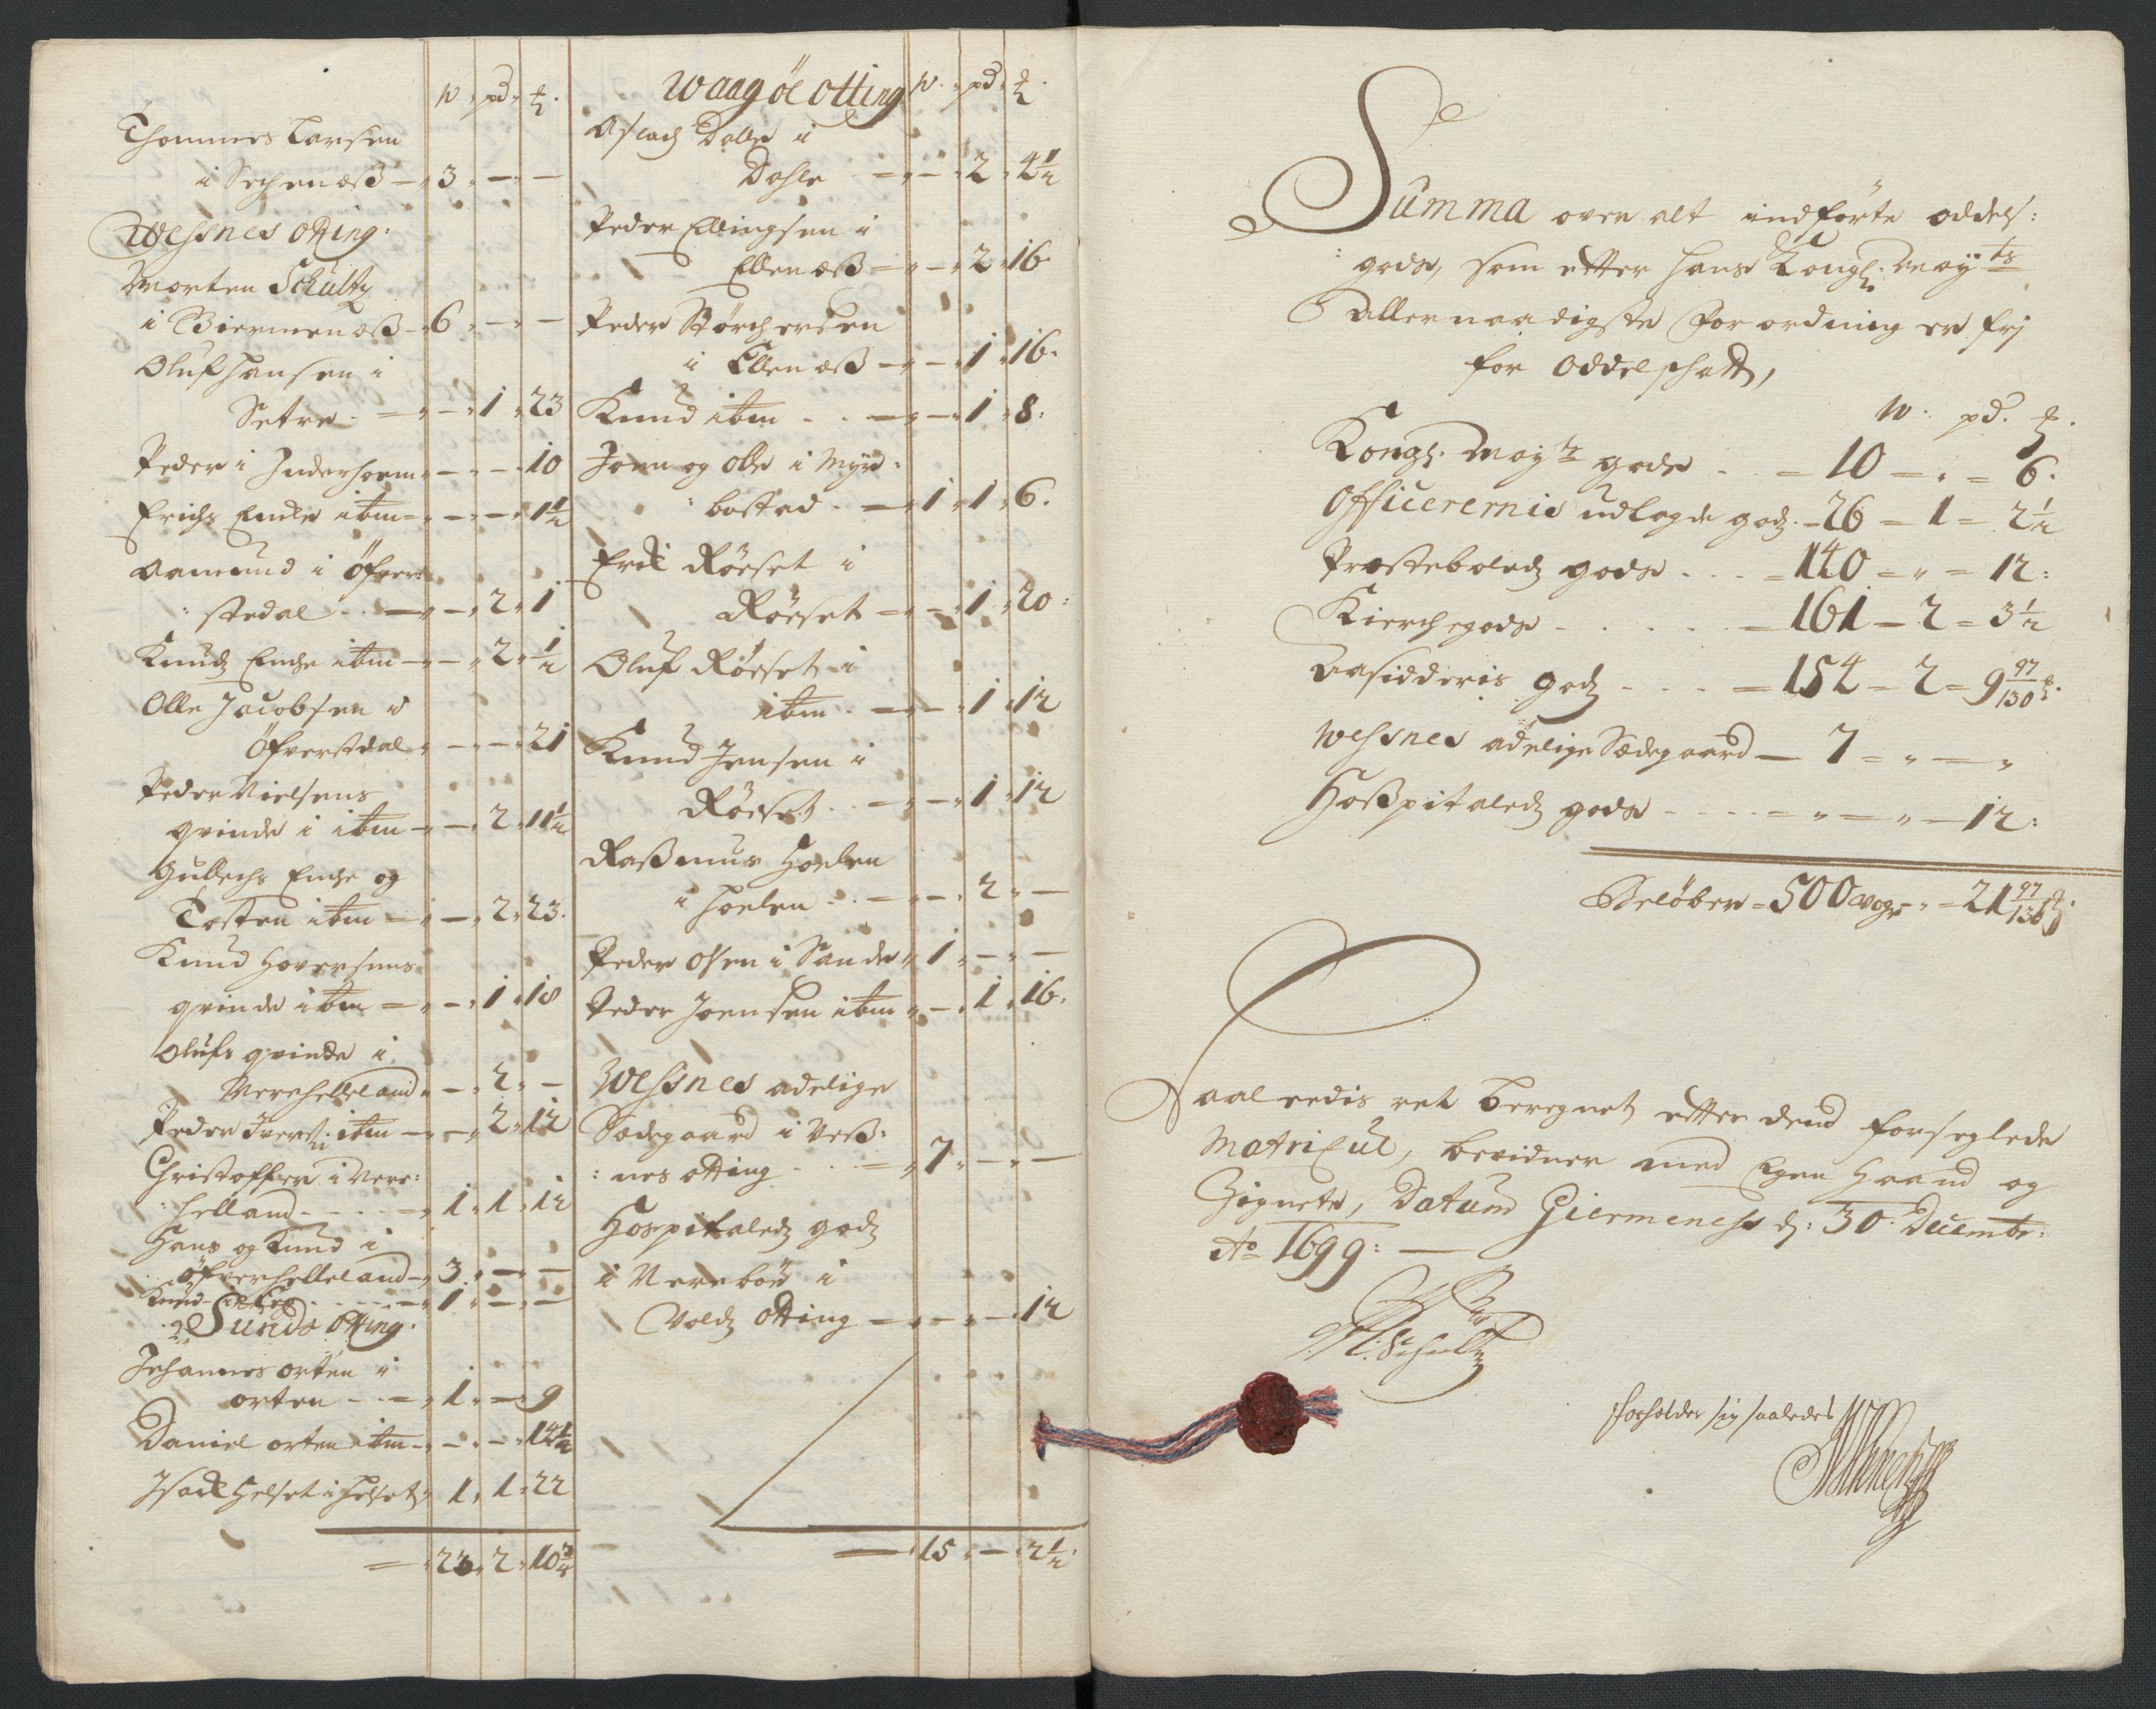 w. pd. ℔.
Thommes Larsen
i Sechenæß – 3. – –
Wessnes otting.
Morten Schültz
i Giermenæß – 6. – –
Oluf Hansen i
Setre. – – 1. 23
Peder i Inderhoem – – 10
Erichs Encke ibm – – 1½
Aamund i Öfver:
:stedal – – 2. 1
Knudz Encke ibm – – 2. ½
Olle Jacobsen i
Öfverstdal – – 21
Peder Nielsens
qvinde i ibm – – 2. 11½
Gullechs Encke og
Tosten ibm – – 2. 23.
Knud Hoversens
qvinde ibm – – 1. 18
Olufs qvinde i
Nerehelleland – 2. –
Peder Iversen ibm – – 2. 12
Christoffer i Nere:
:helland – 1. 1. 12
Hans og Knud i
Öfverhelleland – 3. – –
Knud – 1. – –
Sunds Otting.
Johannes orten i
orten – 1. – 9
Daniel orten ibm – – 14½
Isach Helset i Helset 1. 1. 22
= 23. 2. 10¾
Waagöe Otting w. pd. ℔.
Aslach Dalle i
Dahle – – 2. 4½
Peder Ellingsen i
Ellenæß – – 2. 16.
Peder Störchersen
i Ellenæß – – 1. 16.
Knud ibm – – 1. 8.
Joen og Olle i Myre:
:bostad. – 1. 1. 6.
Erik Röeset i
Röeset – – 1. 20.
Oluf Röeset i
ibm. – – 1. 12
Knud Jensen i
Röeset. – – 1. 12
Rasmus Hoelen
i Hoelen – – 2. –
Peder Olsen i Sande 1. – –
Peder Joensen ibm – 1. 16.
Wessnes adelige
Sædegaard i Weß:
:nes otting – 7. – –
Hospitaledz godz
i Nereböe i
Voldz Otting – – – 12
– 15. – 2½.
Summa over alt indförte oddels:
:gods, som efter Hans Kongl. Mayts
Allernaadigste Forordning er frj
for Oddelschatt,
w. pd. ℔.
Kongl. Mayts gods – 10 – „ – 6.
Officerernis udlagde godz. – 26 – 1 – 2½
Præsteboledz gods – 140 – „ – 12:
Kierchegods – 161 – 2 – 3½
Aasidderis godz – 154 – 2 – 9 97/130 ℔.
Wessnes adelige Sædegaard – 7 – „ – „
Hoßpitaledz gods – „ – „ – 12:
Belöber – 500 woger – 21 97/130 ℔.
Saaledis ret beregnet efter dend forseglede
Matricul, bevidner med Egen Haand og
Zignete, Datum Giermeness d: 30 Decembr:
Ao 1699: –
M: Schultz
forholder sig saaledes